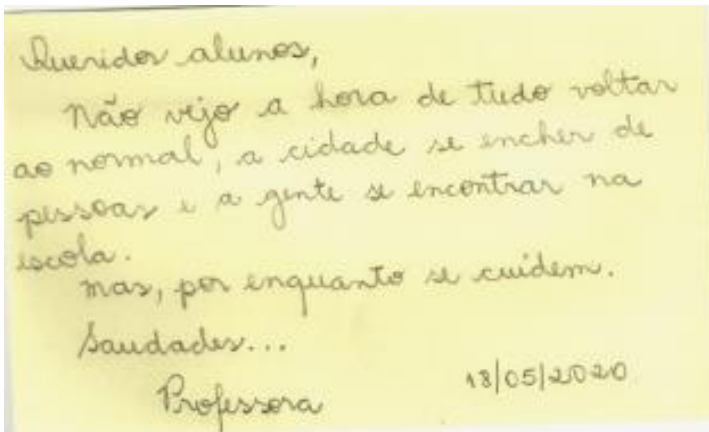 Queridos alunos,
Não vejo a hora de tudo voltar
ao normal, a cidade se encher de
pessoas e a gente se encontrar na
escola.
Mas, por enquanto se cuidem.
Saudades...
Professora 18/05/2020